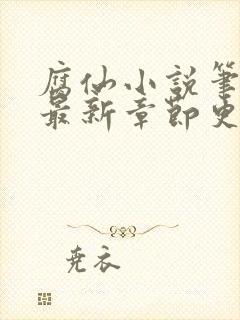 腐仙小説筆
最新章節史
尧衣